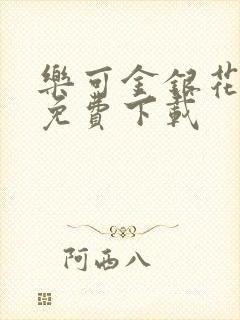 樂可金銀花
免費下載
阿西八